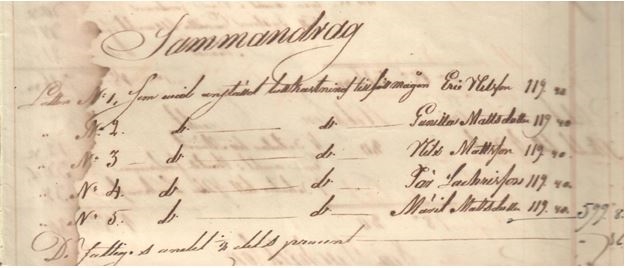 Sammandrag
Lotten N:o 1, som vid anstäld lottkastning tillföll mågen Eric Nilsson 119. 40.
" N:o 2. do do Gunilla Mattsdotter 119. 40.
" N:o 3 do do Nils Mattsson 119. 40.
" N:o 4. do do Pär Zachrisson 119. 40.
" N:o 5. do do Märit Mattsdotter 119. 40. 597.
De fattiges andel 1/8 dels procent